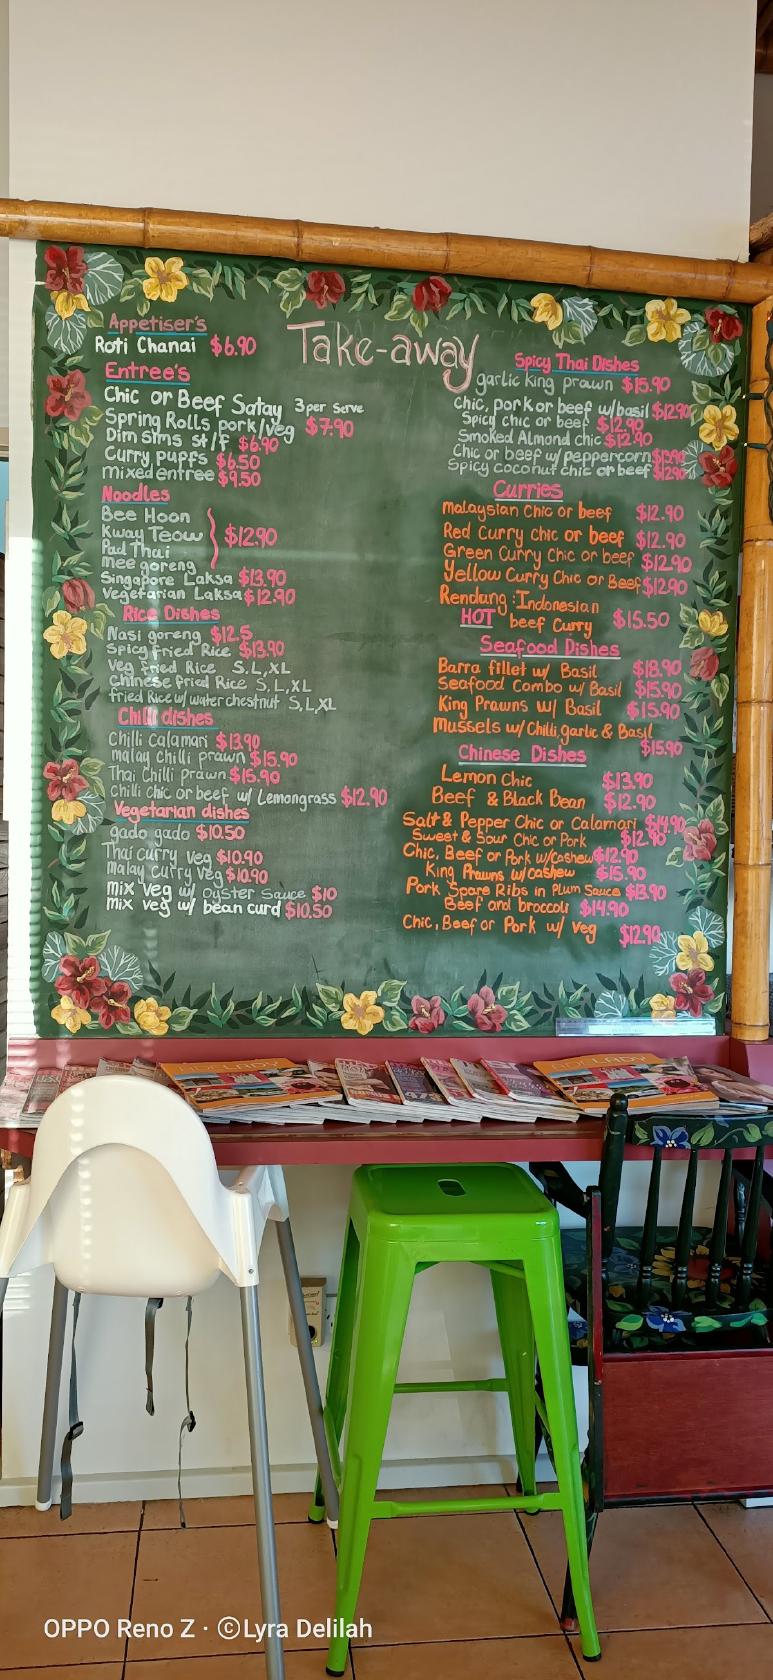 Take-away
Appetiser's
Roti Chanai $6.90
Entree's
Chic or Beef Satay 3 per serve
Spring Rolls pork/veg $7.90
Dim sims st/f $6.90
Curry puffs $6.50
mixed entree $9.50
Noodles
Bee Hoon
Kway Teow $12.90
Pad Thai
mee goreng
Singapore Laksa $13.90
Vegetarian Laksa $12.90
Rice Dishes
Nasi goreng $12.5
Spicy fried Rice $13.90
Veg fried Rice S,L,XL
Chinese fried Rice S,L,XL
fried Rice w/ water chestnut S,L,XL
Chilli dishes
Chilli Calamari $13.90
malay chilli prawn $15.90
Thai Chilli prawn $15.90
chilli chic or beef w/ Lemongrass $12.90
Vegetarian dishes
gado gado $10.50
Thai curry veg $10.90
malay curry veg $10.90
mix veg w/ oyster sauce $10
mix veg w/ bean curd $10.50
Spicy Thai Dishes
garlic king prawn $15.90
Chic, pork or beef w/basil $12.90
Spicy chic or beef $12.90
Smoked Almond chic $12.90
Chic or beef w/ peppercorn
Spicy coconut chic or beef $12.90
Curries
Malaysian Chic or beef $12.90
Red Curry Chic or beef $12.90
Green Curry Chic or beef $12.90
Yellow Curry Chic or Beef $12.90
Rendang : Indonesian
HOT beef Curry $15.50
Seafood Dishes
Barra fillet w/ Basil $18.90
Seafood Combo w/ Basil $15.90
King Prawns w/ Basil $15.90
Mussels w/ Chilli, garlic & Basil
$15.90
Chinese Dishes
Lemon Chic $13.90
Beef & Black Bean $12.90
Salt & Pepper Chic or Calamari $14.90
Sweet & Sour Chic or Pork $12.90
Chic, Beef or Pork w/cashew $12.90
King Prawns w/cashew $15.90
Pork Spare Ribs in Plum Sauce $13.90
Beef and broccoli $14.90
Chic, Beef or Pork w/ Veg $12.90
OPPO Reno Z · ©Lyra Delilah